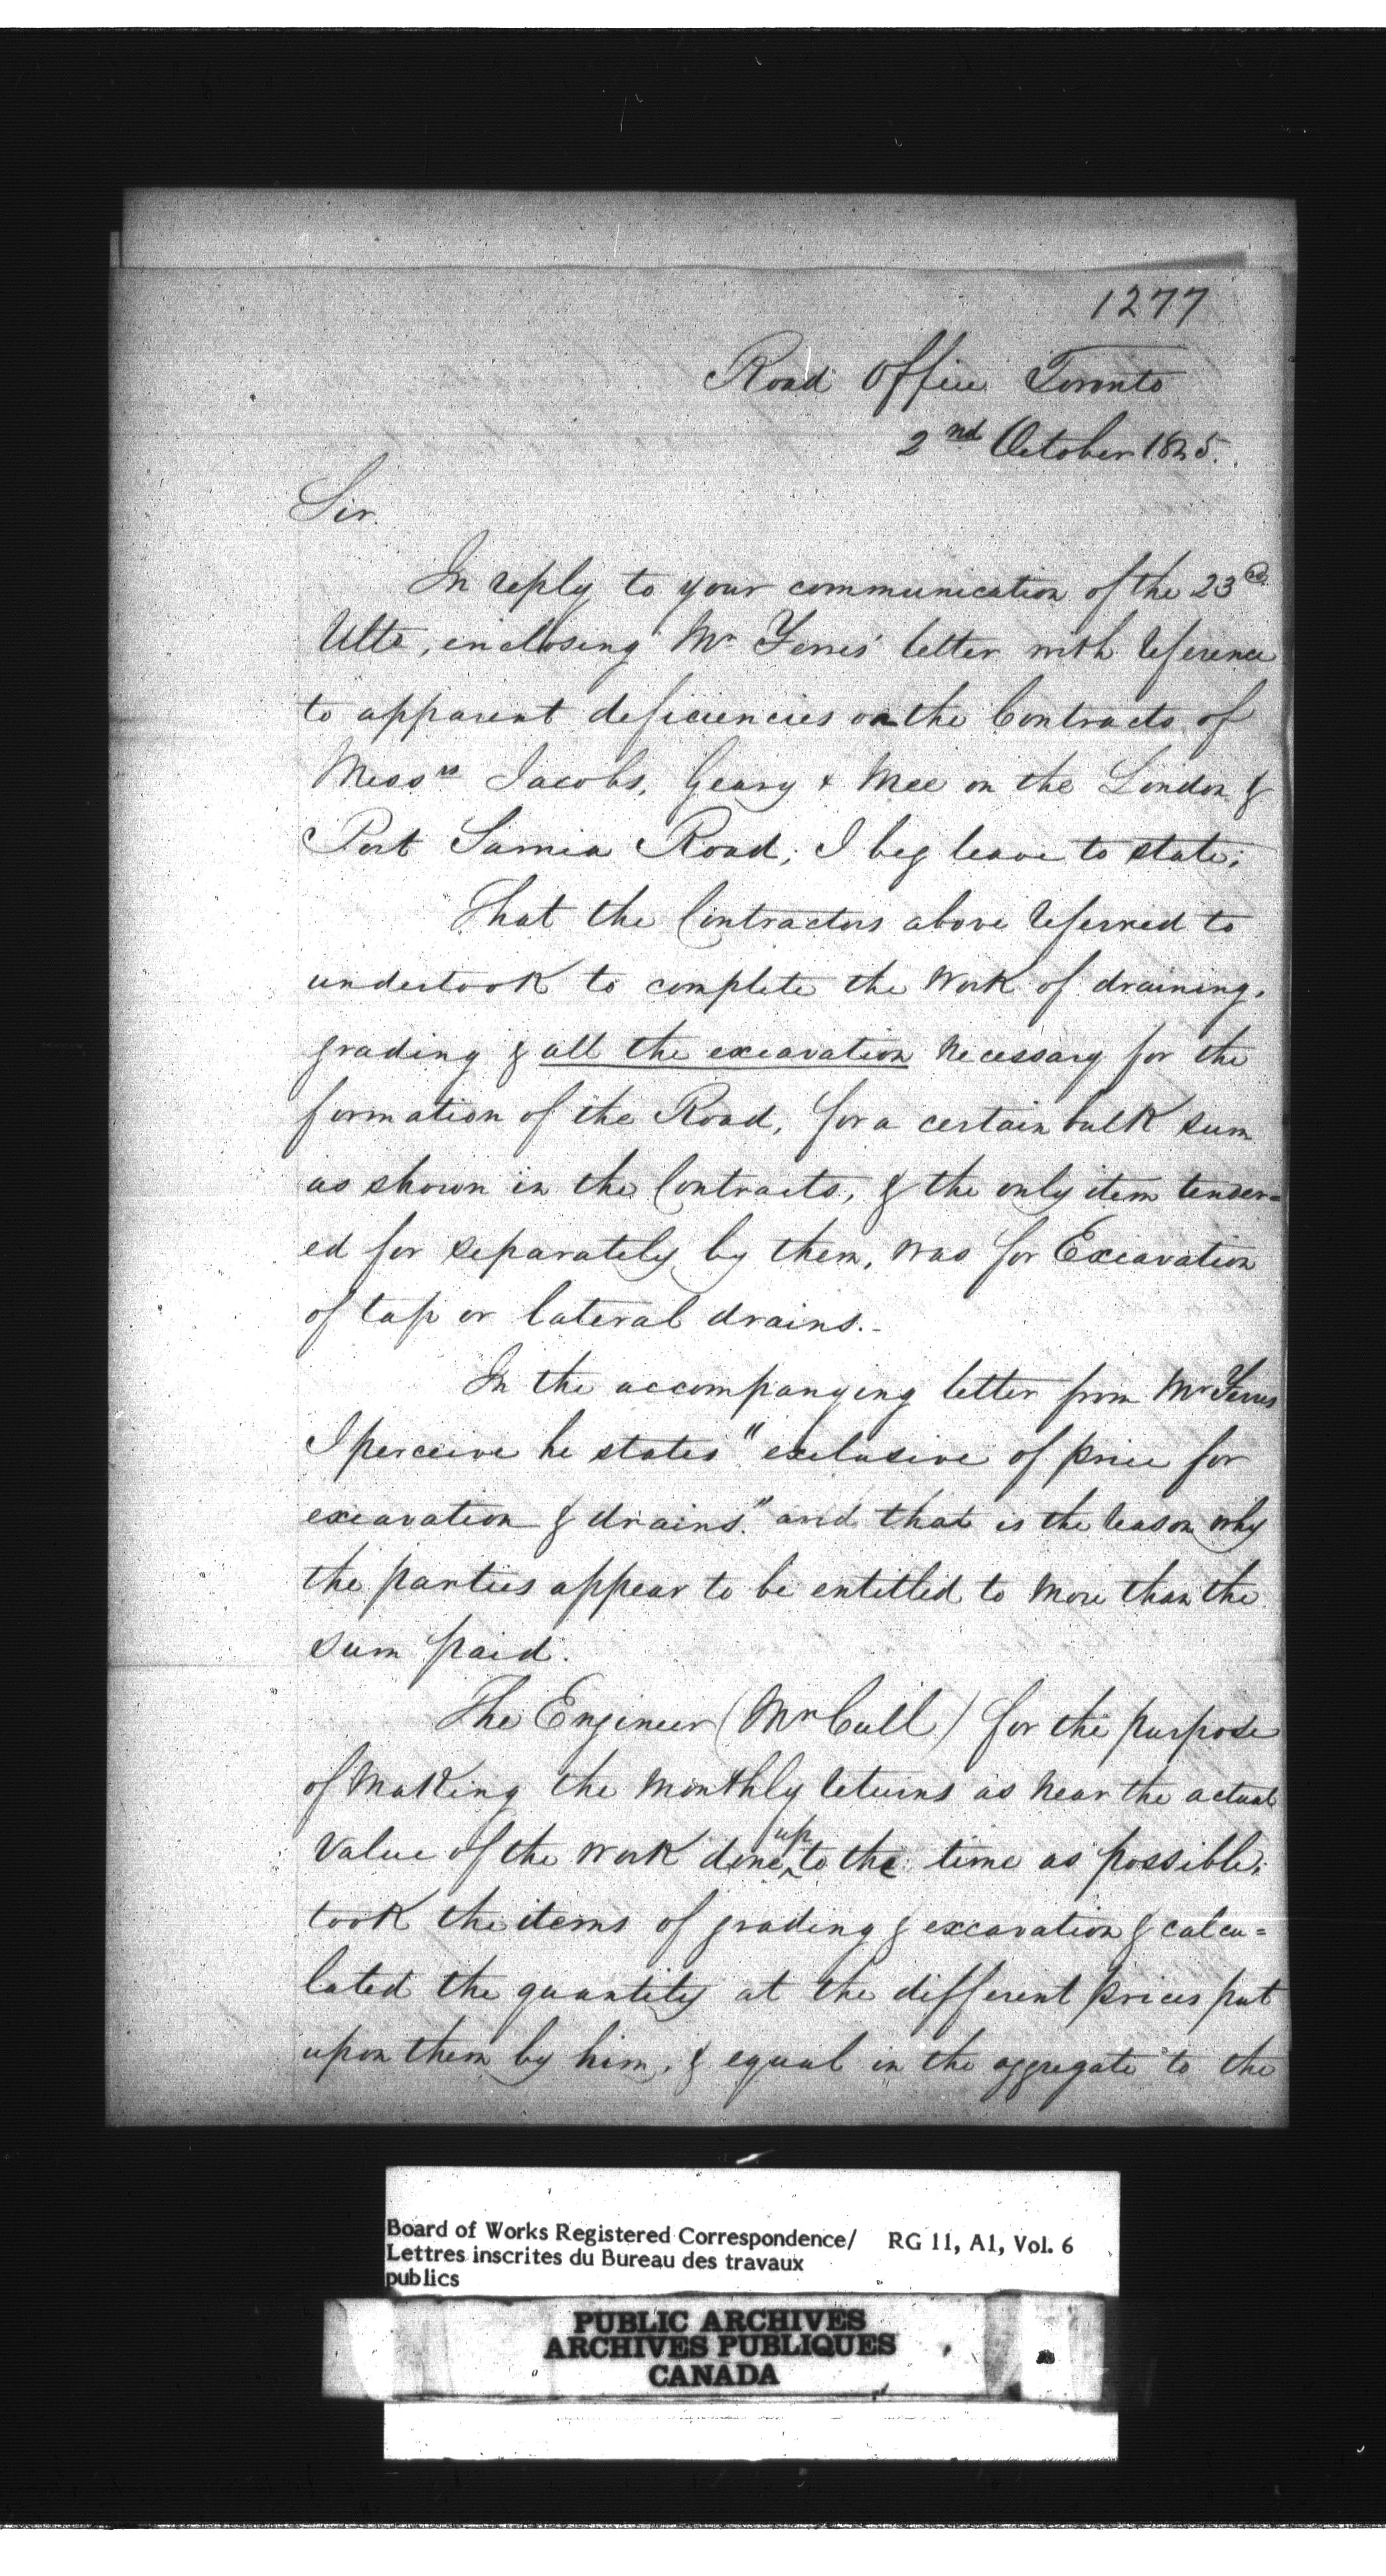 1277
Road Office Toronto
2nd October 1845.
Sir.
In reply to your communication of the 23rd
Ulto, inclosing Mr Ferres' letter with reference
to apparent deficiencies on the Contracts of
Messrs Jacobs, Geary & Mee on the London &
Port Sarnia Road; I beg leave to state;
That the Contractors above referred to
undertook to complete the work of draining,
grading & all the excavation necessary for the
formation of the Road, for a certain bulk sum
as shown in the Contracts, & the only item tender=
ed for separately by them, was for Excavation
of tap or lateral drains.-
In the accompanying letter from Mr Ferres
I perceive he states "exclusive of price for
excavation & drains." and that is the reason why
the parties appear to be entitled to more than the
sum paid.
The Engineer (Mr Cull) for the purpose
of making the monthly returns as near the actual
value of the work done up to the time as possible;
took the items of grading & excavation & calcu=
lated the quantity at the different prices put
upon them by him, & equal in the aggregate to the
Board of Works Registered Correspondence/ RG 11, A1, Vol. 6
Lettres inscrites du Bureau des travaux
publics
PUBLIC ARCHIVES
ARCHIVES PUBLIQUES
CANADA